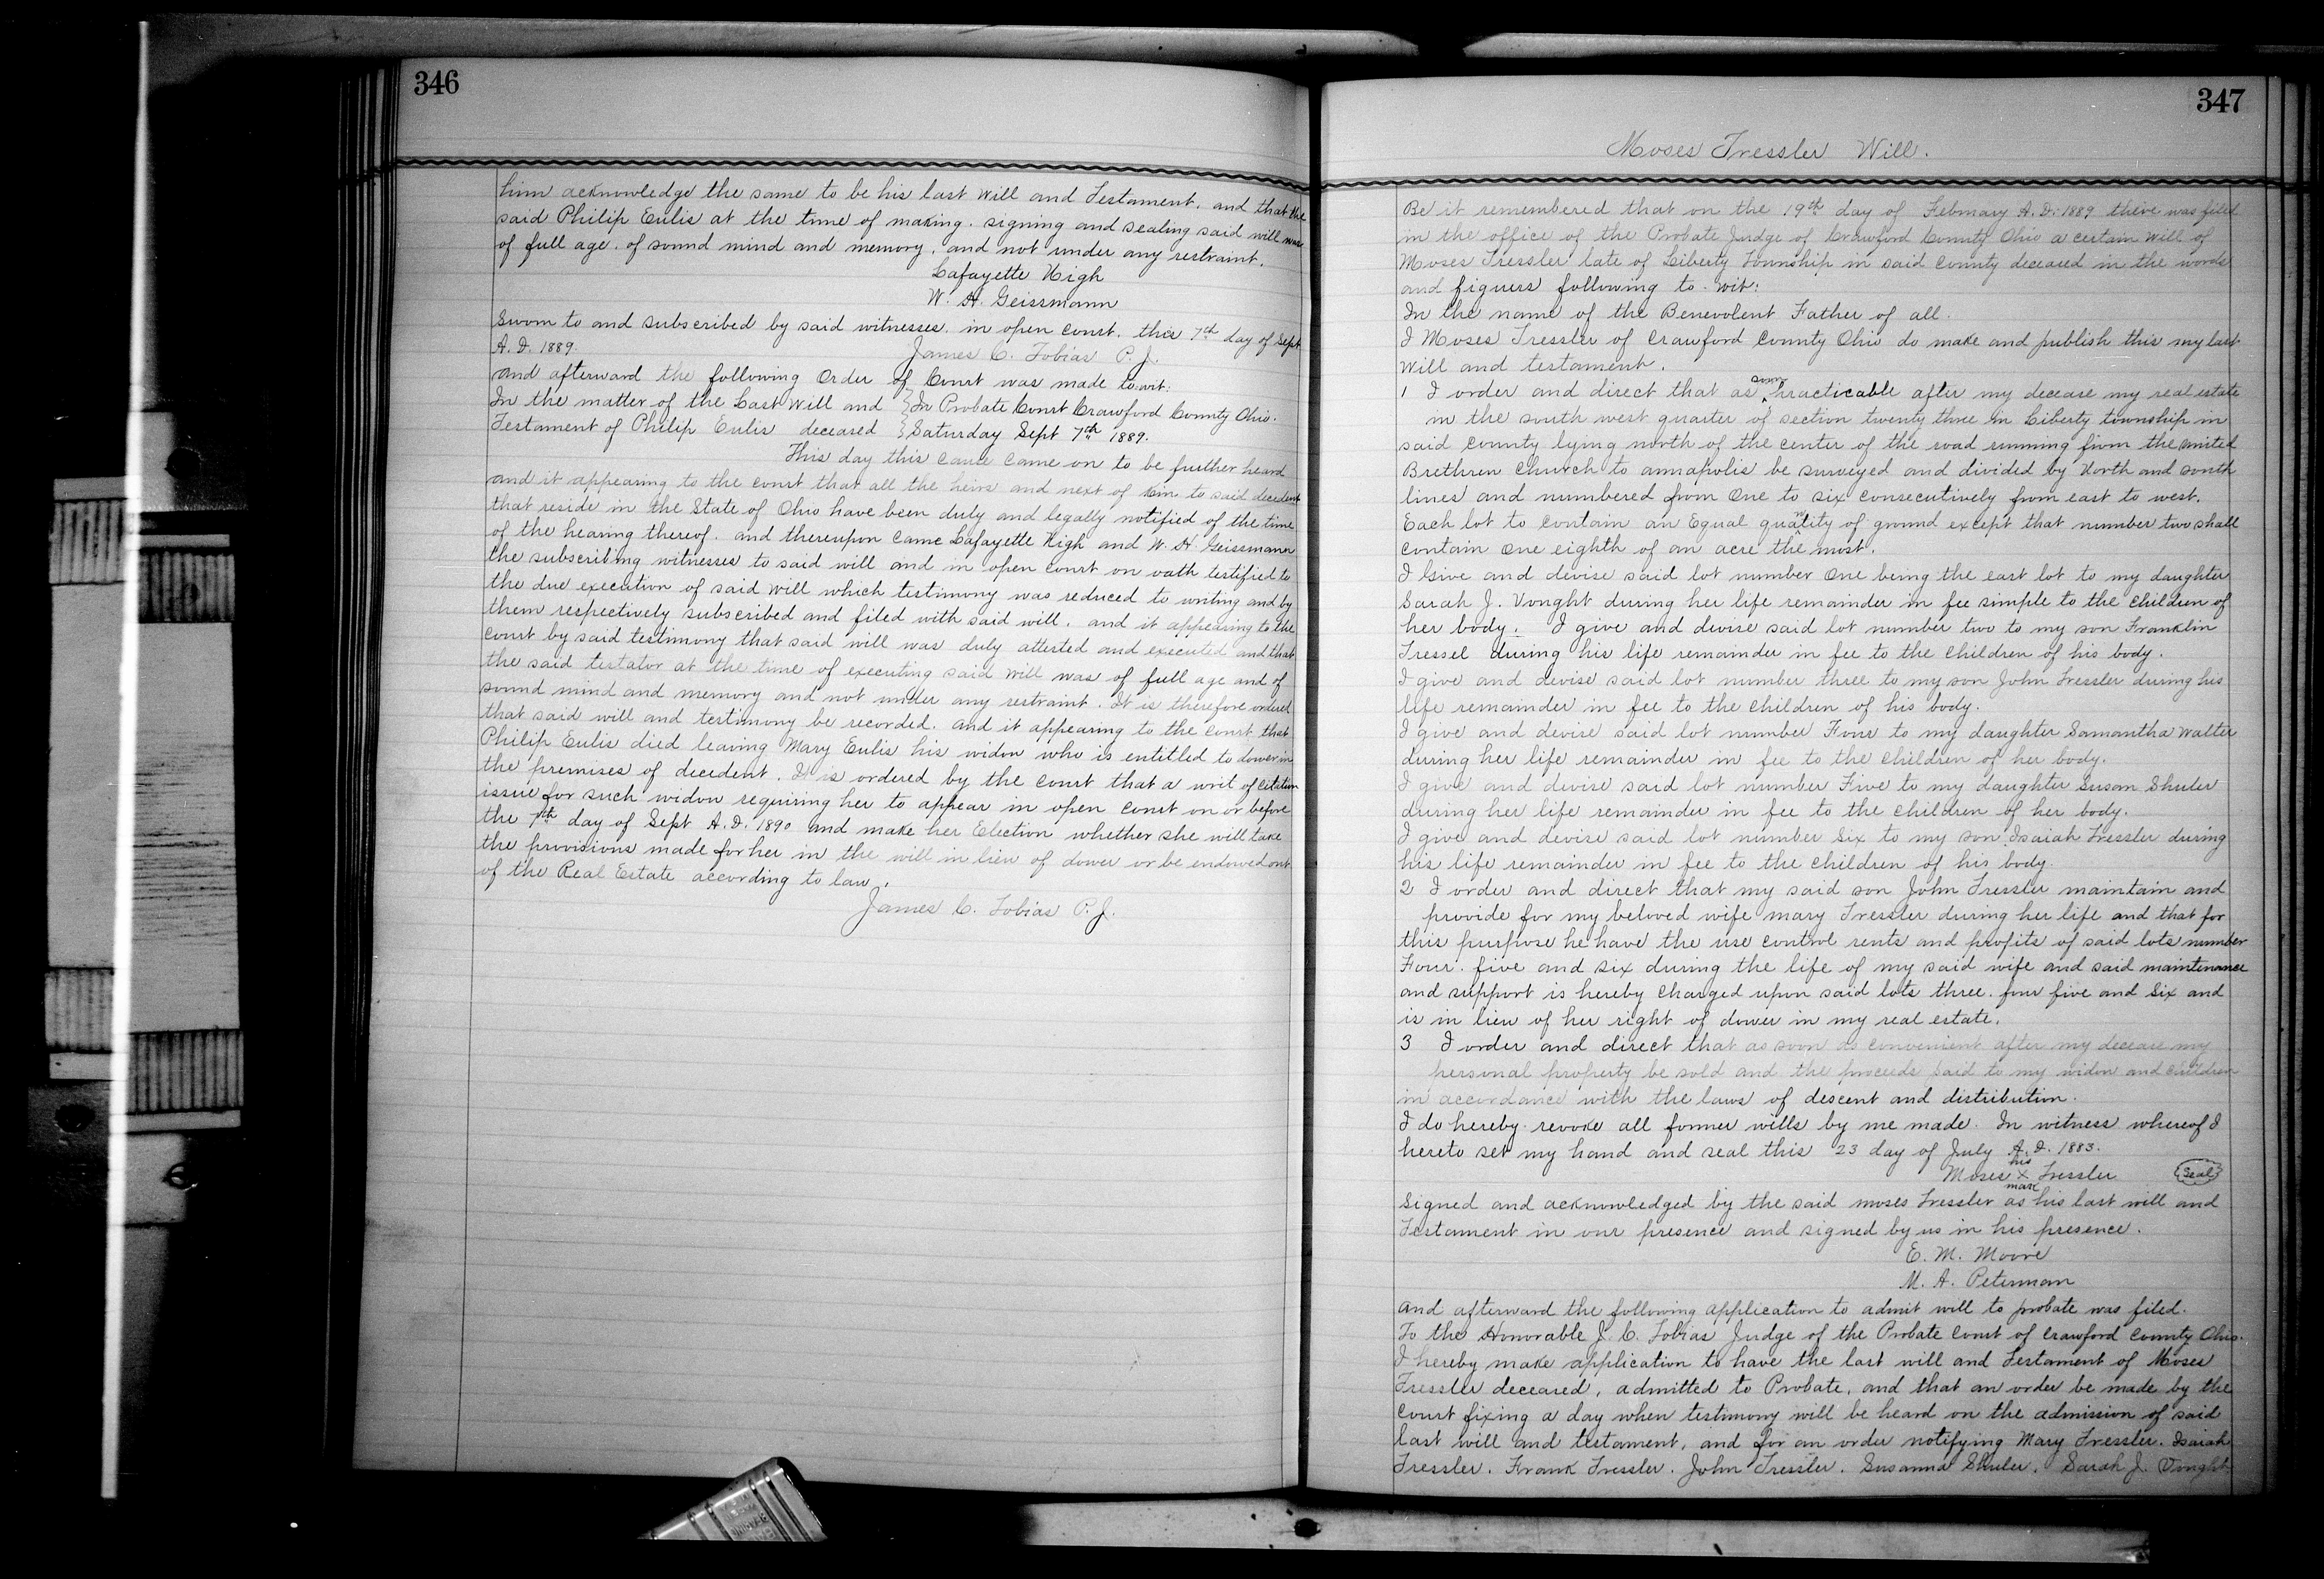 346
him acknowledge the same to be his last Will and Testament. and that the
said Philip Eulis at the time of making. signing and sealing said will was
of full age. of sound mind and memory. and not under any restraint.
Lafayette High
W. H. Geissmann
Sworn to and subscribed by said witnesses. in open court. this 7th day of Sept.
A.D. 1889.
James C. Tobias P.J.
And afterward the following Order of Court was made to wit:
In the matter of the Last Will and } In Probate Court Crawford County Ohio.
Testament of Philip Eulis deceased } Saturday Sept 7th 1889.
This day this cause came on to be further heard
and it appearing to the court that all the heirs and next of kin to said decedent
that reside in the State of Ohio have been duly and legally notified of the time
of the hearing thereof. and thereupon came Lafayette High and W. H. Geissmann
the subscribing witnesses to said will and in open court on oath testified to
the due execution of said will which testimony was reduced to writing and by
them respectively subscribed and filed with said will. and it appearing to the
court by said testimony that said will was duly attested and executed and that
the said testator at the time of executing said will was of full age and of
sound mind and memory and not under any restraint. It is therefore ordered
that said will and testimony be recorded. And it appearing to the court that
Philip Eulis died leaving Mary Eulis his widow who is entitled to dower in
the premises of decedent. It is ordered by the court that a writ of citation
issue for such widow requiring her to appear in open court on or before
the 7th day of Sept A.D. 1890 and make her Election whether she will take
the provisions made for her in the will in lieu of dower or be endowed out
of the Real Estate according to law.
James C. Tobias P.J.
347
Moses Tressler Will.
Be it remembered that on the 19th day of February A.D. 1889 there was filed
in the office of the Probate Judge of Crawford County Ohio a certain Will of
Moses Tressler late of Liberty Township in said county deceased in the words
and figures following to-wit:
In the name of the Benevolent Father of all.
I Moses Tressler of Crawford County Ohio do make and publish this my last
Will and testament.
1 I order and direct that as soon practicable after my decease my real estate
in the south west quarter of section twenty three in Liberty township in
said county lying north of the center of the road running from the united
Brethren Church to annapolis be surveyed and divided by North and south
lines and numbered from One to six consecutively from east to west.
Each lot to contain an Equal quantity of ground except that number two shall
contain one eighth of an acre the most.
I Give and devise said lot number One being the east lot to my daughter
Sarah J. Vonght during her life remainder in fee simple to the children of
her body. I give and devise said lot number two to my son Franklin
Tressel during his life remainder in fee to the children of his body.
I give and devise said lot number three to my son John Tressler during his
life remainder in fee to the children of his body.
I give and devise said lot number Four to my daughter Samantha Walter
during her life remainder in fee to the children of her body.
I give and devise said lot number Five to my daughter Susan Shuler
during her life remainder in fee to the children of her body.
I give and devise said lot number Six to my son Isaiah Tressler during
his life remainder in fee to the children of his body.
2 I order and direct that my said son John Tressler maintain and
provide for my beloved wife mary Tressler during her life and that for
this purpose he have the use control rents and profits of said lots number
Four. five and six during the life of my said wife and said maintenance
and support is hereby charged upon said lots three. four five and six and
is in lieu of her right of dower in my real estate.
3 I order and direct that as soon as convenient after my decease my
personal property be sold and the proceeds paid to my widow and children
in accordance with the laws of descent and distribution.
I do hereby revoke all former wills by me made. In witness whereof I
hereto set my hand and seal this 23 day of July A.D. 1883.
his
Moses X Tressler (Seal)
mark
Signed and acknowledged by the said moses Tressler as his last will and
Testament in our presence and signed by us in his presence.
E. M. Moore
M. A. Peterman
And afterward the following application to admit will to probate was filed.
To the Honorable J. C. Tobias Judge of the Probate Court of Crawford County Ohio.
I hereby make application to have the last will and Testament of Moses
Tressler deceased, admitted to Probate, and that an order be made by the
Court fixing a day when testimony will be heard on the admission of said
last will and testament, and for an order notifying Mary Tressler. Isaiah
Tressler. Frank Tressler. John Tressler. Susanna Shuler. Sarah J. Vonght